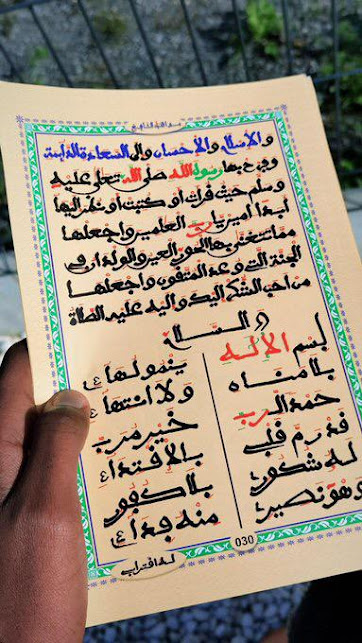 والإسلام والإحسان وإلى السعادة الدائمة
وفرح بها رسول الله صلى الله تعالى عليه
وسلم حيث قرأت أو كتبت أو نظر إليها
أبدا آمين يا رب العالمين واجعلها
مما تغتر بها الحور العين والولدان في
الجنة التي وعد المتقون واجعلها
من أحب الشكر إليك وإليه عليه الصلاة
والسلام
بسم الإله
بلا متاه
حمد الرب
له شكور
وهو نصير
ولا انتهاء
خير مرب
بالافتداء
بلا كفور
منه فداء
030
له اقتراب